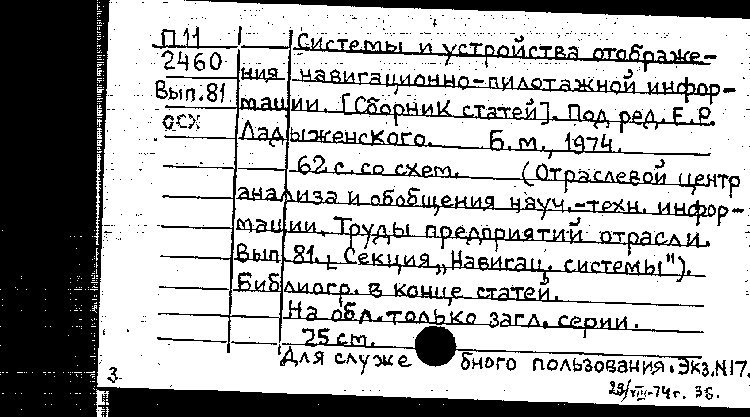 П11 Системы и устройства отображе-
2460 ния навигационно-пилотажной инфор-
Вып.81 мации. [Сборник статей]. Под ред. Е.Р.
осх Ладыженского. Б.м., 1974.
62 с. со схем. (Отраслевой центр
анализа и обобщения науч.-техн. инфор-
мации. Труды предприятий отрасли.
Вып. 81. Секция „Навигац. системы").
Библиогр. в конце статей.
На обл. только загл. серии.
25 см.
Для служебного пользования. Экз. N17.
3. 29/VIII-74г. ЗБ.